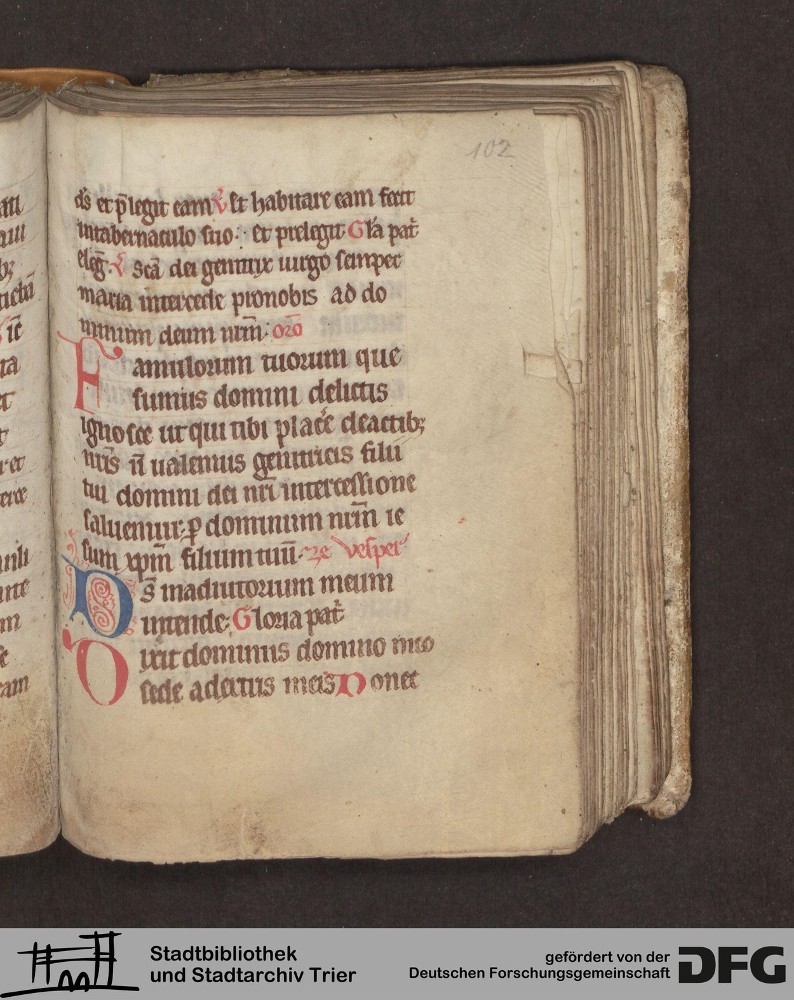 102
ds̄ et p̄legit eam V Et habitare eam fecit
intabernaculo suo. et prelegit Gl̄a pat̄
eleḡ. V Scā dei genitrix uirgo semper
maria intercede pronobis ad do
minum deum nr̄m. or̄o
Famulorum tuorum que
sumus domini delictis
ignosce ut qui tibi placē deactib;
nr̄is n̄ ualemus genitricis filii
tui domini dei nr̄i intercessione
saluemur. p̄ dominum nr̄m ie
sum xp̄m filium tuū. Ze vesper
Ds̄ inadiutorium meum
intende. Gloria pat̄
Dixit dominus domino meo
sede adextris meis Donec
Stadtbibliothek
und Stadtarchiv Trier
gefördert von der
Deutschen Forschungsgemeinschaft
DFG